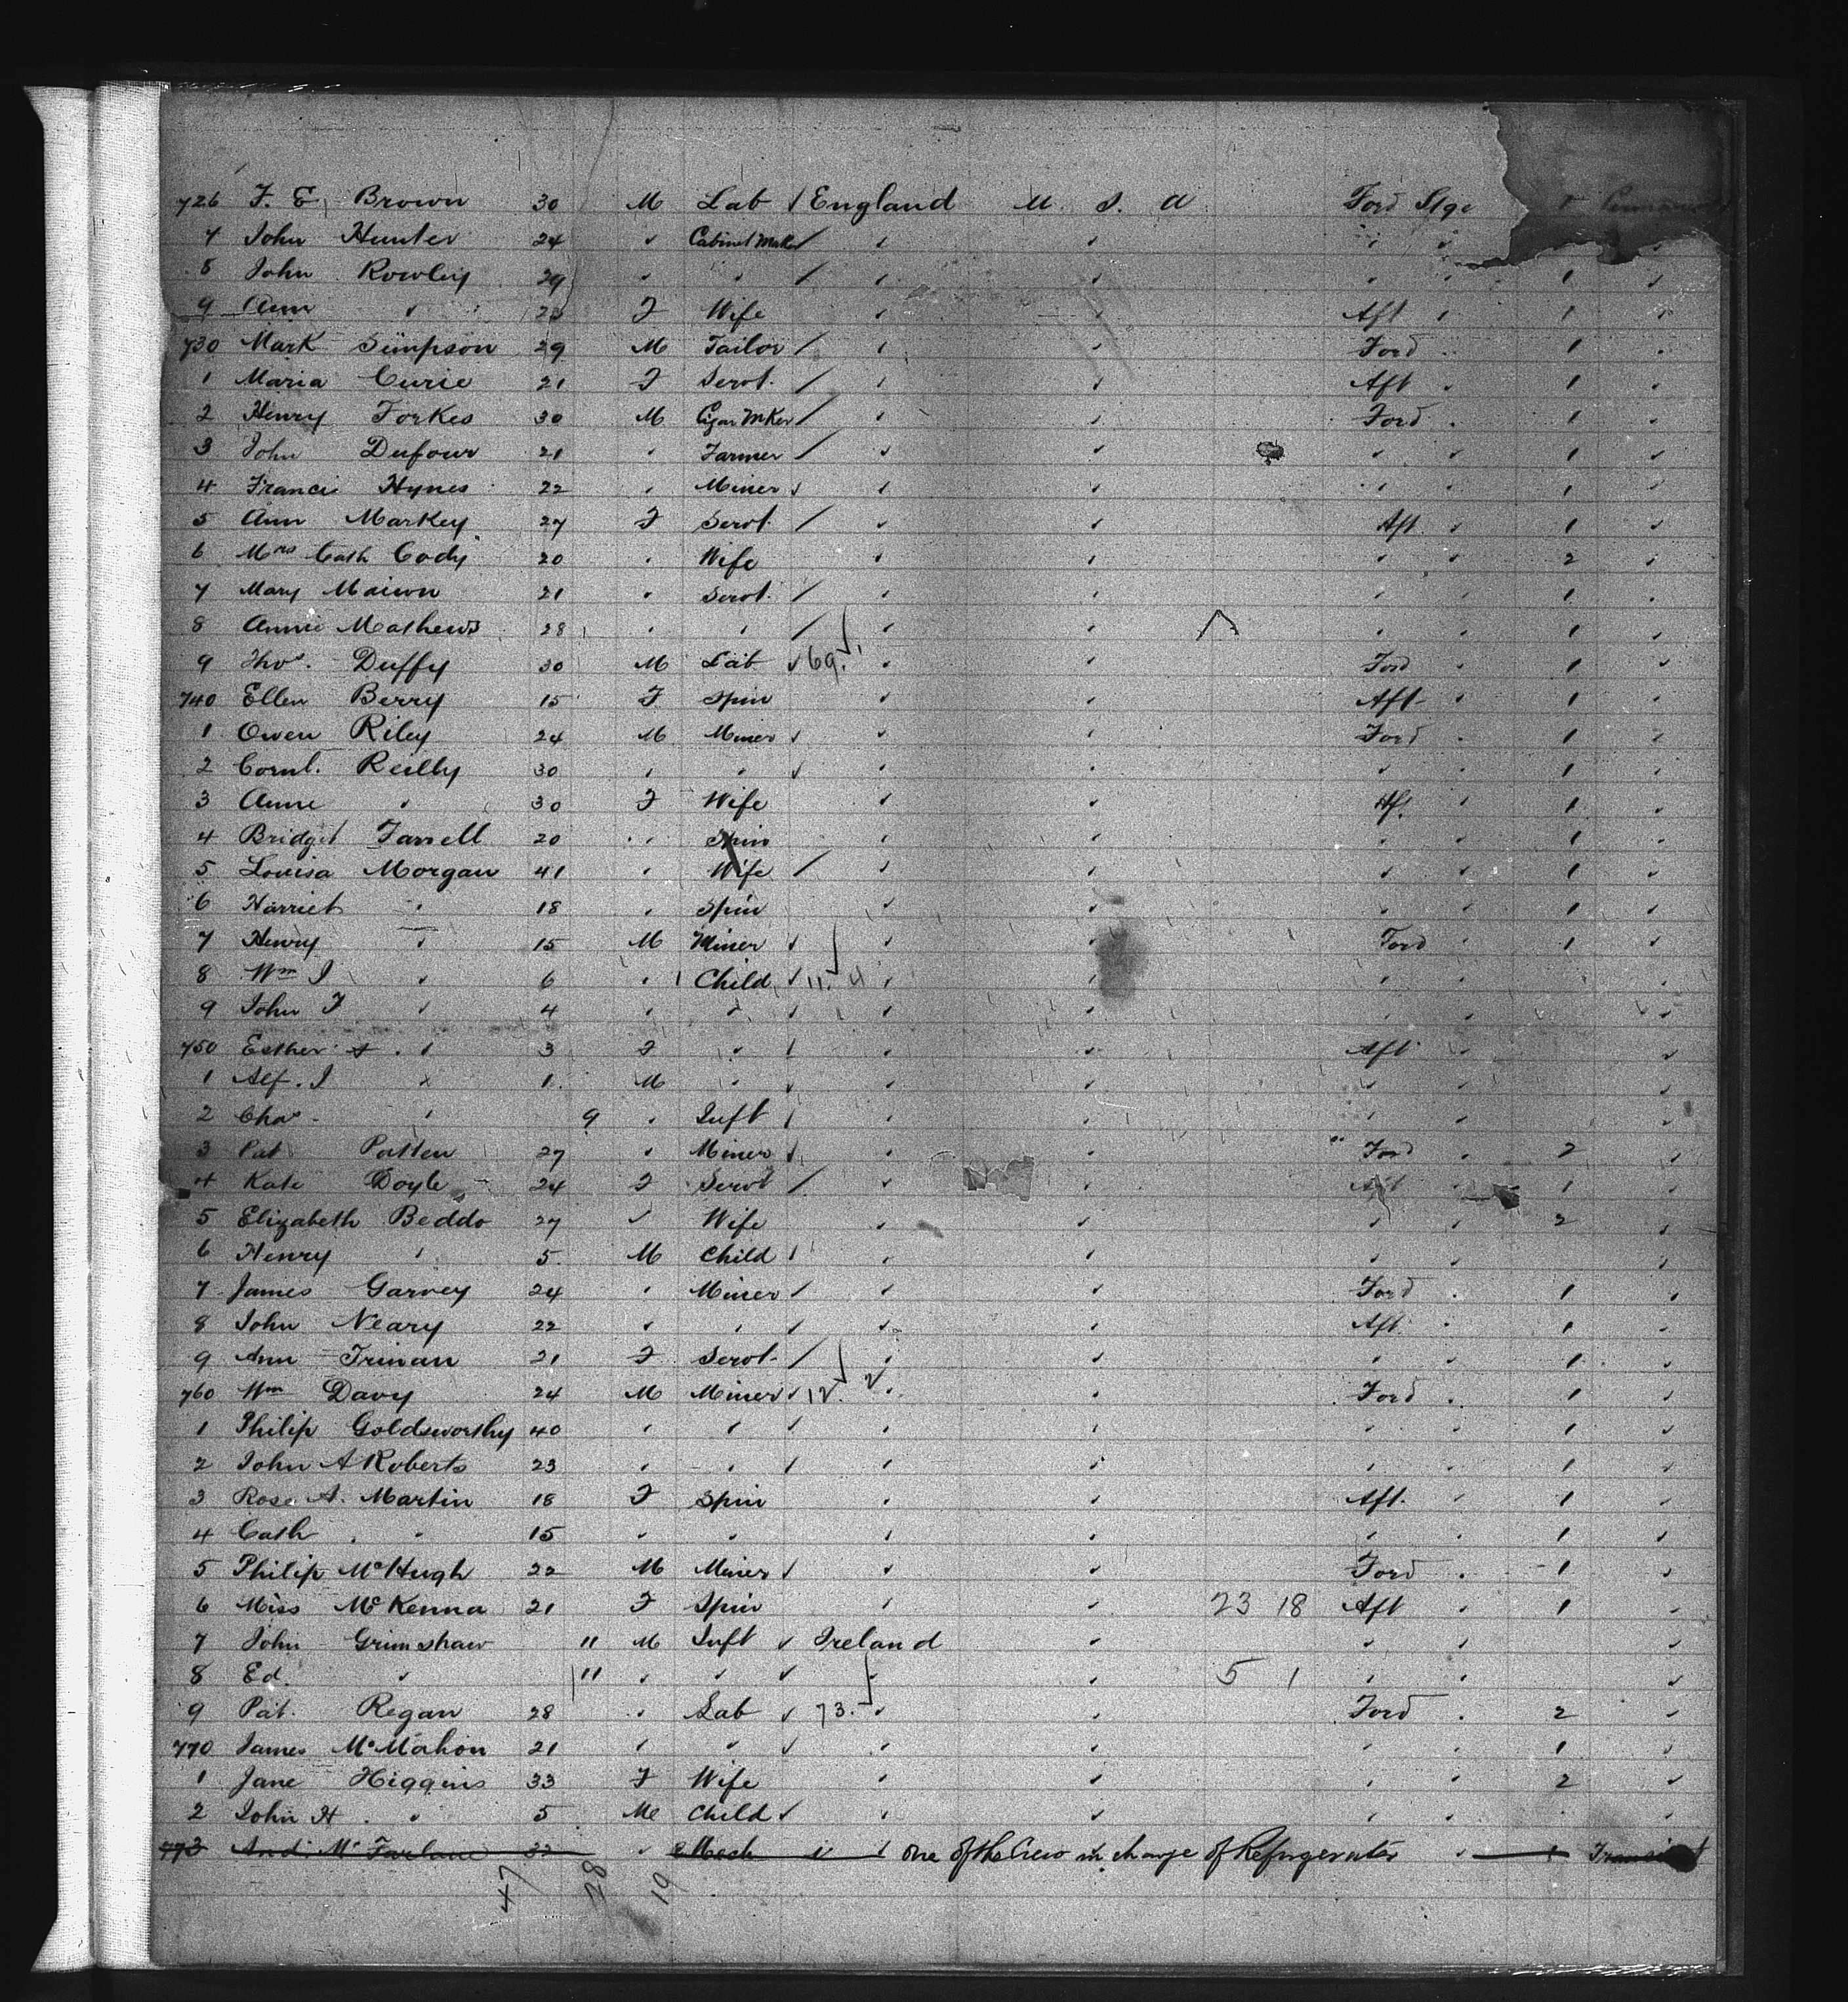 726 F. E. Brown 30 M Lab / England U. S. A Ford Stge 1
7 John Hunter 24 " Cabinet Mker / " " " "
8 John Rowley 29 " " / " " " " 1 "
9 Ann " F Wife " " Aft " 1 "
730 Mark Simpson 29 M Tailor / " " Ford " 1 "
1 Maria Curie 21 F Servt. / " " Aft " 1 "
2 Henry Forkes 30 M Cigar Mker / " " Ford " 1 "
3 John Dufour 21 " Farmer / " " " " 1 "
4 Francis Hynes 22 " Miner / " " " " 1 "
5 Ann Markey 27 F Servt. / " " Aft " 1 "
6 Mrs Cath Cody 20 " Wife " " " " 2 "
7 Mary 21 " Servt. / " " " " 1 "
8 Annie Mathews 28 " " / " " " " 1 "
9 Thos. Duffy 30 M Lab / 69. " " Ford " 1 "
740 Ellen Berry 15 F Spin " " Aft " 1 "
1 Owen Riley 24 M Miner / " " Ford " 1 "
2 Cornl. Reilly 30 " " / " " " " 1 "
3 Anne " 30 F Wife " " Aft " 1 "
4 Bridget Farrell 20 " Spin " " " " 1 "
5 Louisa Morgan 41 " Wife / " " " " 1 "
6 Harriet " 18 " Spin " " " " 1 "
7 Henry " 15 M Miner / " " Ford " 1 "
8 Wm J " 6 " Child / 11. 4 " " " "
9 John F " 4 " " / " " " " "
750 Esther " 3 F " / " " Aft " "
1 Alf. J " 1 M " / " " " " "
2 Chas. " 9 " Inft / " " " " "
3 Pat Patten 27 " Miner / " " Ford " 2 "
4 Kate Doyle 24 F Servt / " " Aft " 1 "
5 Elizabeth Beddo 27 " Wife " " " " 2 "
6 Henry " 5 M Child / " " " " "
7 James Garvey 24 " Miner / " " Ford " 1 "
8 John Neary 22 " " / " " Aft " 1 "
9 Ann Trinan 21 F Servt / " " " " 1 "
760 Wm Davy 24 M Miner / 12. 2 " " Ford " 1 "
1 Philip Goldsworthy 40 " " / " " " " 1 "
2 John A Roberts 23 " " / " " " " 1 "
3 Rose A. Martin 18 F Spin " " Aft. " 1 "
4 Cath " 15 " " " " " " 1 "
5 Philip McHugh 22 M Miner / " " Ford " 1 "
6 Miss McKenna 21 F Spin " " 23 18 Aft " 1 "
7 John Grimshaw 11 M Inft / Ireland " " " "
8 Ed. " 11 " " / " " 5 1 " " "
9 Pat. Regan 28 " Lab / 73. " " Ford " 2 "
770 James McMahon 21 " " / " " " " 1 "
1 Jane Higgins 33 F Wife " " " " 2 "
2 John H. " 5 M Child / " " " " "
773 And. McFarlane 32 " Mech " " one of the Crew in charge of Refrigerator " 1 Transient
47 28 19